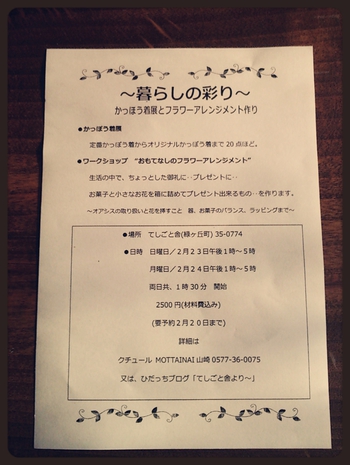 ～暮らしの彩り～
かっぽう着展とフラワーアレンジメント作り
●かっぽう着展
定番かっぽう着からオリジナルかっぽう着まで20点ほど。
●ワークショップ “おもてなしのフラワーアレンジメント”
生活の中で、ちょっとした御礼に‥プレゼントに‥
お菓子と小さなお花を箱に詰めてプレゼント出来るもの‥を作ります。
～オアシスの取り扱いと花を挿すこと 器、お菓子のバランス、ラッピングまで～
●場所 てしごと舎(緑ヶ丘町) 35-0774
●日時 日曜日／2月23日午後1時～5時
月曜日／2月24日午後1時～5時
両日共、1時30分 開始
2500円(材料費込み)
(要予約2月20日まで)
詳細は
クチュール MOTTAINAI 山崎 0577-36-0075
又は、ひだっちブログ「てしごと舎より～」